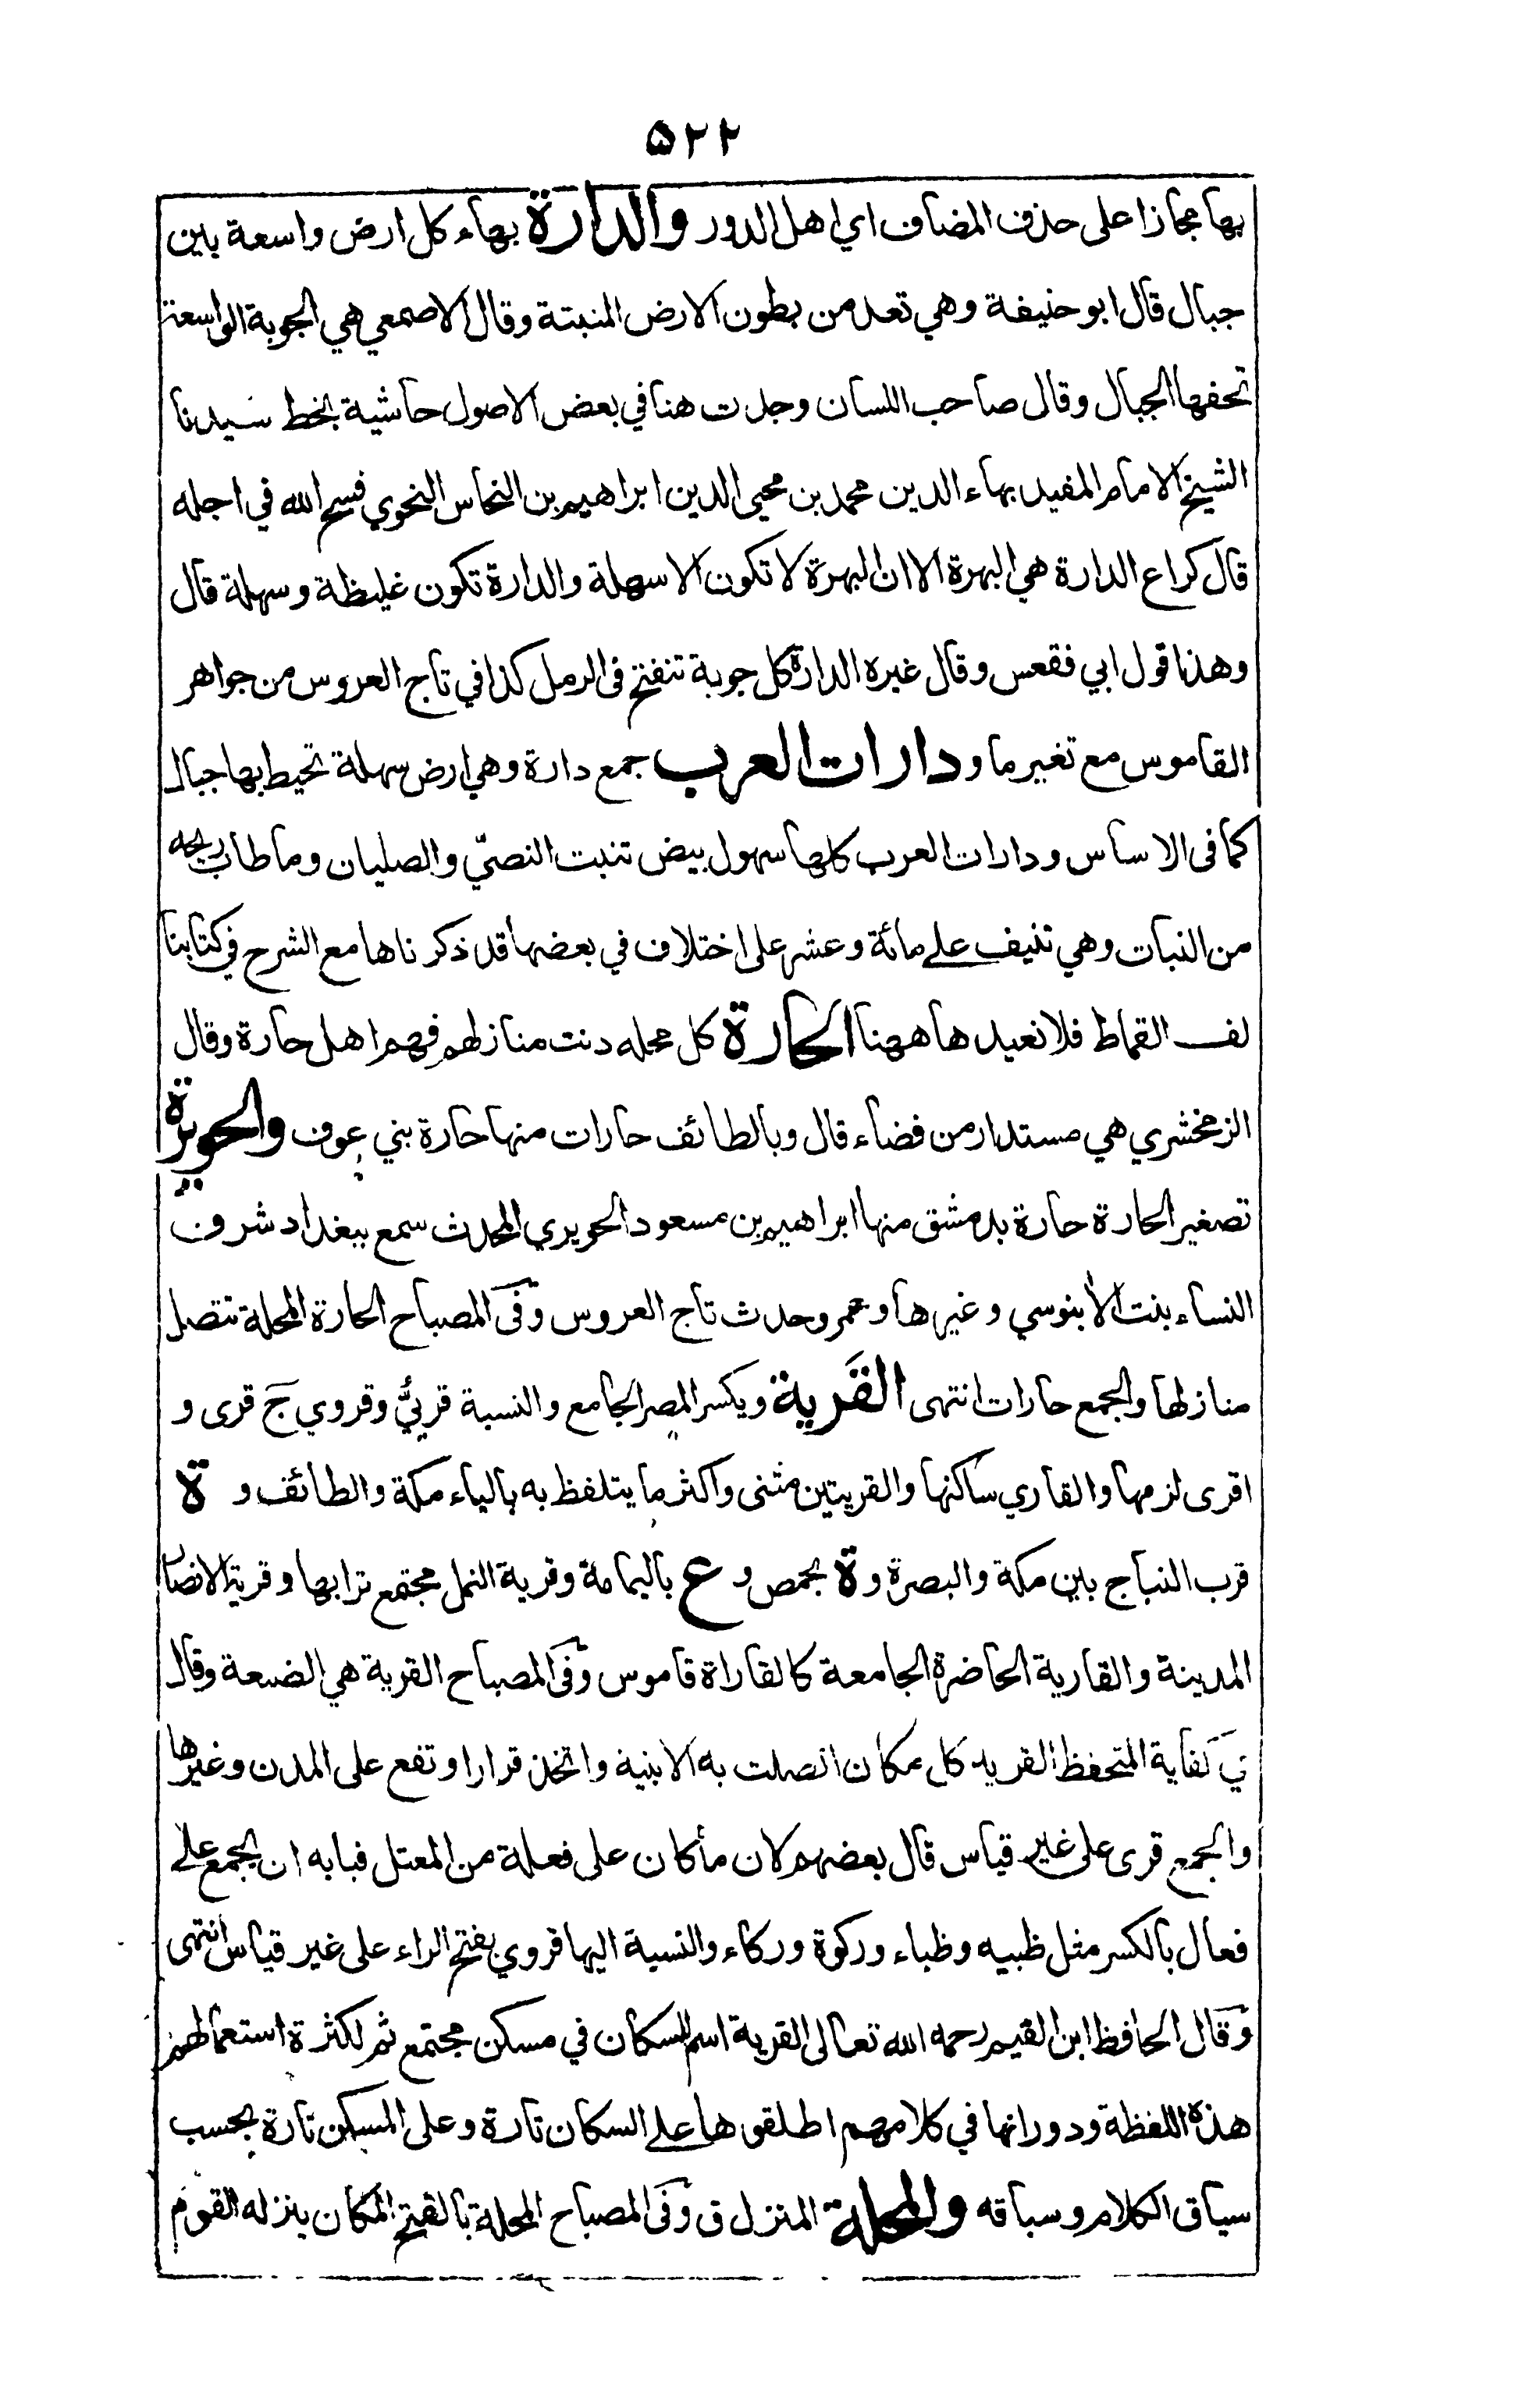 ۵۲۲
بها مجازا على حذف المضاف اي اهل الدور والدارة بهاء كل ارض واسعة بين
جبال قال ابو حنيفة وهي تعد من بطون الارض المنبتة وقال الاصمعي هي الجوبة الواسعة
تحفها الجبال وقال صاحب اللسان وجدت هنا في بعض الاصول حاشية بخط سيدنا
الشيخ الامام المفيد بهاء الدين محمد بن محيي الدين ابراهيم بن النحاس النحوي فسح الله في اجله
قال كراع الدارة هي البهرة الا ان البهرة لا تكون الا سهلة والدارة تكون غليظة وسهلة قال
وهذا قول ابي فقعس وقال غيره الدارة كل جوبة تنفتح فى الرمل كذا في تاج العروس من جواهر
القاموس مع تغير ما ودارات العرب جمع دارة وهي ارض سهلة تحيط بها جبال
كما فى الاساس ودارات العرب كلها سهول بيض تنبت النصيّ والصليان وما طاب ريحه
من النبات وهي تنيف على مائة وعشر على اختلاف في بعضها قد ذكرناها مع الشرح في كتابنا
لف القماط فلا نعيدها ههنا الحارة كل محله دنت منازلهم فهم اهل حارة وقال
الزمخشري هي مستدار من فضاء قال وبالطائف حارات منها حارة بني عوف والحويرة
تصغير الحارة حارة بدمشق منها ابراهيم بن مسعود الحويري المحدث سمع ببغداد شرف
النساء بنت الأبنوسي وغيرها وعمر وحدث تاج العروس وفى المصباح الحارة المحلة تتصل
منازلها والجمع حارات انتهى القَرية ويكسر المصر الجامع والنسبة قريئّ وقروي ج قرى و
اقرى لزمها والقاري ساكنها والقريتين مثنى واكثر ما يتلفظ به بالياء مكة والطائف و ة
قرب النباج بين مكة والبصرة و ة بحمص و ع باليمامة وقرية النمل مجتمع ترابها وقرية الانصار
المدينة والقارية الحاضرة الجامعة كالقاراة قاموس وفى المصباح القرية هي الضيعة وقال
في كفاية المتحفظ القريه كل مكان اتصلت به الابنية واتخذ قرارا وتقع على المدن وغيرها
والجمع قرى على غير قياس قال بعضهم لان ما كان على فعلة من المعتل فبابه ان يجمع على
فعال بالكسر مثل ظبيه وظباء وركوة وركاء والنسبة اليها قروي بفتح الراء على غير قياس انتهى
وقال الحافظ ابن القيم رحمه الله تعالى القرية اسم للسكان في مسكن مجتمع ثم لكثرة استعمالهم
هذه اللفظة ودورانها في كلامهم اطلقوها على السكان تارة وعلى المسكن تارة بحسب
سياق الكلام وسباقه والمحلة المنزل ق وفى المصباح المحلة بالفتح المكان ينزله القوم